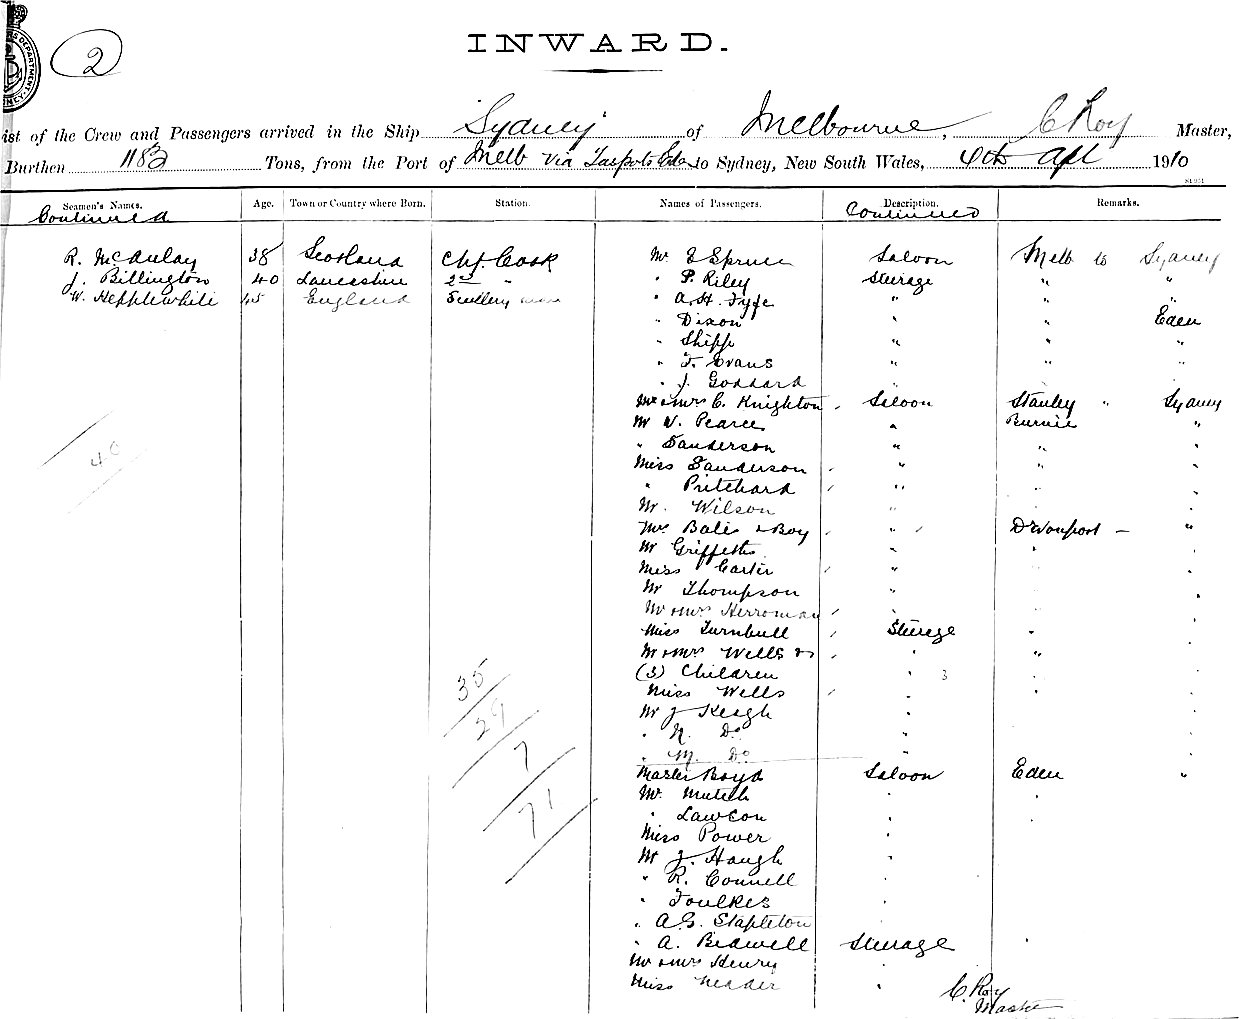 2
INWARD.
ist of the Crew and Passengers arrived in the Ship "Sydney" of Melbourne, C Roy Master,
Burthen 1183 Tons, from the Port of Melb via Eden to Sydney, New South Wales, 1910
Seamen's Names. Age. Town or Country where Born. Station. Names of Passengers. Description. Remarks.
Continued Continued
R. McAulay 38 Scotland Chf. Cook Mr E Spruce Saloon Melb to Sydney
J. Billington 40 Lancashire 2nd " " P. Riley Steerage " "
W. Hepplewhite 45 England Scullery man " A. H. Fyfe " " "
" Dixon " " Eden
" Shipp " " "
" F. Evans " " "
" J. Goddard "
Mr & Mrs C. Knighton Saloon Stanley " Sydney
Mr W. Pearce " Burnie "
" Sanderson " " "
40
Miss Sanderson " " "
" Pritchard " " "
Mr. Wilson " " "
Mrs Bale & Boy " Devonport — "
Mr Griffiths " " "
Miss Carter " "
Mr Thompson " "
Mr & Mrs Herroman "
Miss Turnbull Steerage " "
Mr & Mrs Wells & " " "
(3) Children " 3 " "
35
Miss Wells " " "
29
Mr J Keogh "
" N. Do "
7
" M. Do "
Master Boyd Saloon Eden "
71
Mr. Mutch " "
" Lawson " "
Miss Power "
Mr J. Haugh "
" R. Connell "
" Foulkes "
" A. G. Stapleton
" A. Bidwell Steerage "
Mr & Mrs Henry "
Miss "
C. Roy
Master